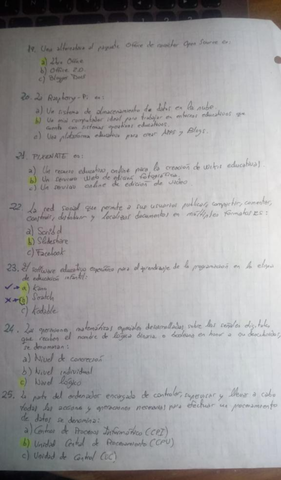 19. Una alternativa al paquete Office de carácter Open Source es:
a) Libre Office
b) Office 2.0
c) Blogger Tool
20. La Raspberry-Pi es:
a) Un sistema de almacenamiento de datos en la nube
b) Un mini computador ideal para trabajar en entornos educativos que
cuenta con sistemas operativos educativos.
c) Una plataforma educativa para crear Apps y Blogs.
21. es:
a) Un recurso educativo online para la creación de videos educativos
b) Un servicio Web de edición fotográfica.
c) Un servicio online de edición de videos
22. La red social que permite a sus usuarios publicar, compartir, comentar,
construir, debatir y localizar documentos en múltiples formatos es:
a) Scribd
b) Slideshare
c) Facebook
23. El software educativo específico para el aprendizaje de la programación en la etapa
de educación infantil:
a)
b) Scratch
c) Kodable
24. Las operaciones matemáticas especiales desarrolladas sobre las señales digitales
que reciben el nombre de lógica
se denominan:
a) Nivel de conversión
b) Nivel individual
c) Nivel lógico
25. La parte del ordenador encargada de controlar, supervisar y llevar a cabo
todas las acciones y operaciones necesarias para efectuar un procesamiento
de datos se denomina:
a) Centro de Proceso Informático (CPI)
b) Unidad Central de Procesamiento (CPU)
c) Unidad de Control (UC)